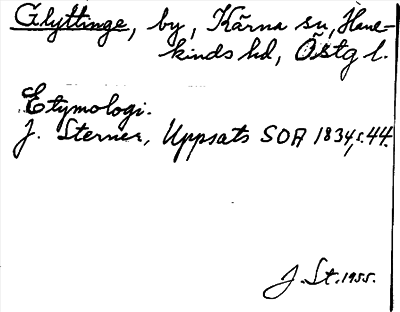 Glyttinge, by, Kärna sn, Hane-
kinds hd, Östg l.
Etymologi.
J. Sterner, Uppsats SOA 1834, s. 44.
J. St. 1955.